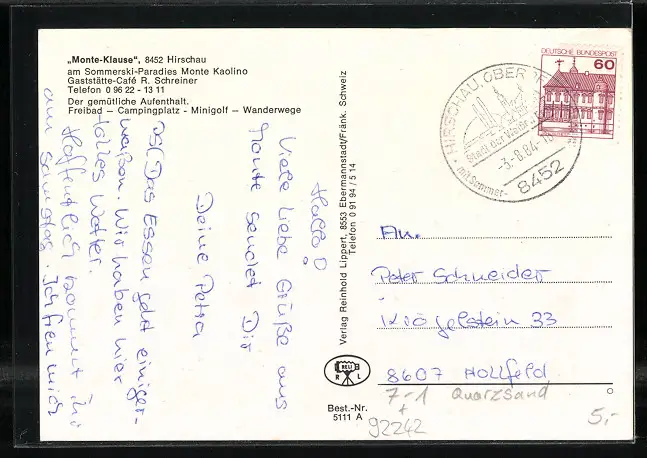 „Monte-Klause“, 8452 Hirschau
am Sommerski-Paradies Monte Kaolino
Gaststätte-Café R. Schreiner
Telefon 0 96 22 - 13 11
Der gemütliche Aufenthalt.
Freibad — Campingplatz - Minigolf — Wanderwege
Hallo!
Viele liebe Grüße aus
Monte sendet Dir
Deine Petra
Das Essen geht einiger-
maßen. Wir haben hier
tolles Wetter.
Hoffentlich kommt ihr
am Samstag. Ich freu mich
Verlag Reinhold Lippert, 8553 Ebermannstadt/Fränk. Schweiz
Telefon 0 91 94 / 5 14
RELI
R L
Best.-Nr.
5111 A
DEUTSCHE BUNDESPOST
60
HIRSCHAU, OBERPF
Stadt der
mit Sommer-
-3.-8.84-
8452
An.
Peter Schneider
Krögelstein 33
8607 Hollfeld
7-1 Quarzsand
+
92242
5,-